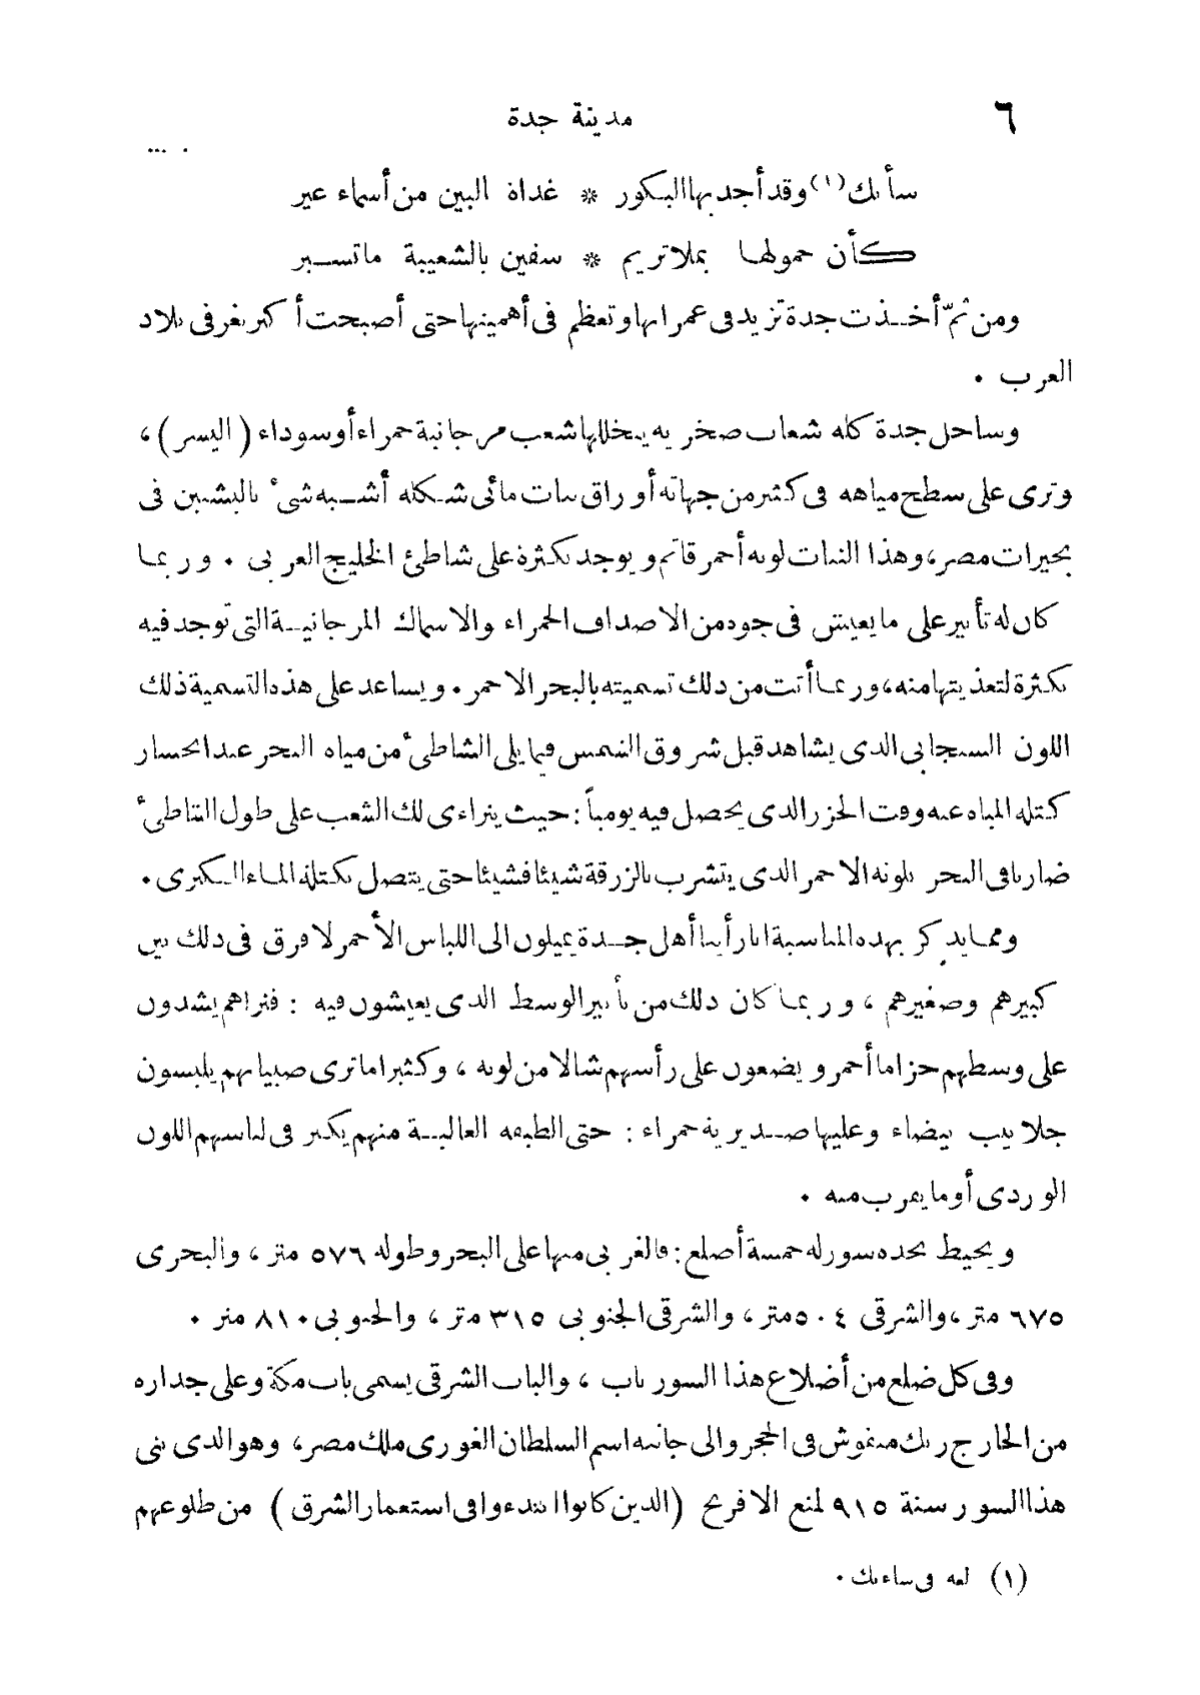 ٦
مدينة جدة
سأتك (١) وقد أجد بها البكور * غداة البين من أسماء عير
كأن حمولها بملا تريم * سفين بالشعيبة ما تسير
ومن ثمّ أخذت جدة تزيد فى عمرانها وتعظم فى أهميتها حتى أصبحت أكبر ثغر فى بلاد
العرب .
وساحل جدة كله شعاب صخرية يتخللها شعب مرجانية حمراء أو سوداء ( اليسر ) ،
وترى على سطح مياهه فى كثير من جهاته أوراق نبات مائى شكله أشبه شىء بالبشنين فى
بحيرات مصر ، وهذا النبات لونه أحمر قاتم ويوجد بكثرة على شاطئ الخليج العربى . وربما
كان له تأثير على ما يعيش فى جوده من الاصداف الحمراء والاسماك المرجانية التى توجد فيه
بكثرة لتغذيتها منه ، وربما أتت من ذلك تسميته بالبحر الاحمر . ويساعد على هذه التسمية ذلك
اللون السنجابى الذى يشاهد قبل شروق الشمس فيما يلى الشاطىء من مياه البحر عند انحسار
كتلة المياه عنه وقت الجزر الذى يحصل فيه يومياً : حيث يتراءى لك الشعب على طول الشاطىء
ضاربا فى البحر بلونه الاحمر الذى يتشرب بالزرقة شيئا فشيئا حتى يتصل بكتلة الماء الكبرى .
ومما يذكر بهذه المناسبة انا رأينا أهل جدة يميلون الى اللباس الأحمر لا فرق فى ذلك بين
كبيرهم وصغيرهم ، وربما كان ذلك من تأثير الوسط الذى يعيشون فيه : فتراهم يشدون
على وسطهم حزاما أحمر ويضعون على رأسهم شالا من لونه ، وكثيرا ما ترى صبيانهم يلبسون
جلابيب بيضاء وعليها صديرية حمراء : حتى الطبقة العالية منهم يكثر فى لباسهم اللون
الوردى أو ما يقرب منه .
ويحيط بجده سور له خمسة أضلع : فالغربى منها على البحر وطوله ٥٧٦ متر ، والبحرى
٦٧٥ متر ، والشرقى ٥٠٤ متر ، والشرقى الجنوبى ٣١٥ متر ، والجنوبى ٨١٠ متر .
وفى كل ضلع من أضلاع هذا السور باب ، والباب الشرقى يسمى باب مكة وعلى جداره
من الخارج رنك منقوش فى الحجر والى جانبه اسم السلطان الغورى ملك مصر ، وهو الذى بنى
هذا السور سنة ٩١٥ لمنع الافرنج ( الذين كانوا ابتدءوا فى استعمار الشرق ) من طلوعهم
(١) لغة فى ساءتك .